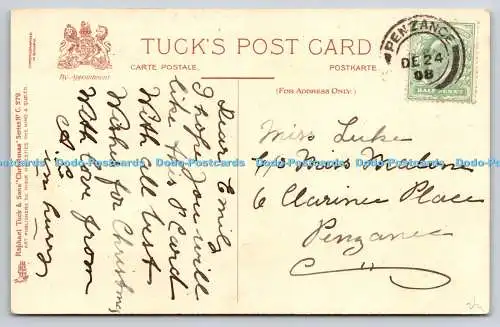 TUCK'S POST CARD
CARTE POSTALE.
POSTKARTE.
By Appointment
(FOR ADDRESS ONLY.)
PENZANCE
DE 24
08
HALF PENNY
Dear Emily
I hope you will
like this P Card
With all best
Wishes for Christmas
With love from
in hurry
Miss Luke
c/o Miss
6 Clarence Place
Penzance
Raphael Tuck & Sons' "Christmas" Series No C.
ART PUBLISHERS TO THEIR MAJESTIES THE KING & QUEEN.
Dodo-Postcards Dodo-Postcards Dodo-Postcards Dodo-Postcards Dodo-Postcards Dodo-Postcards